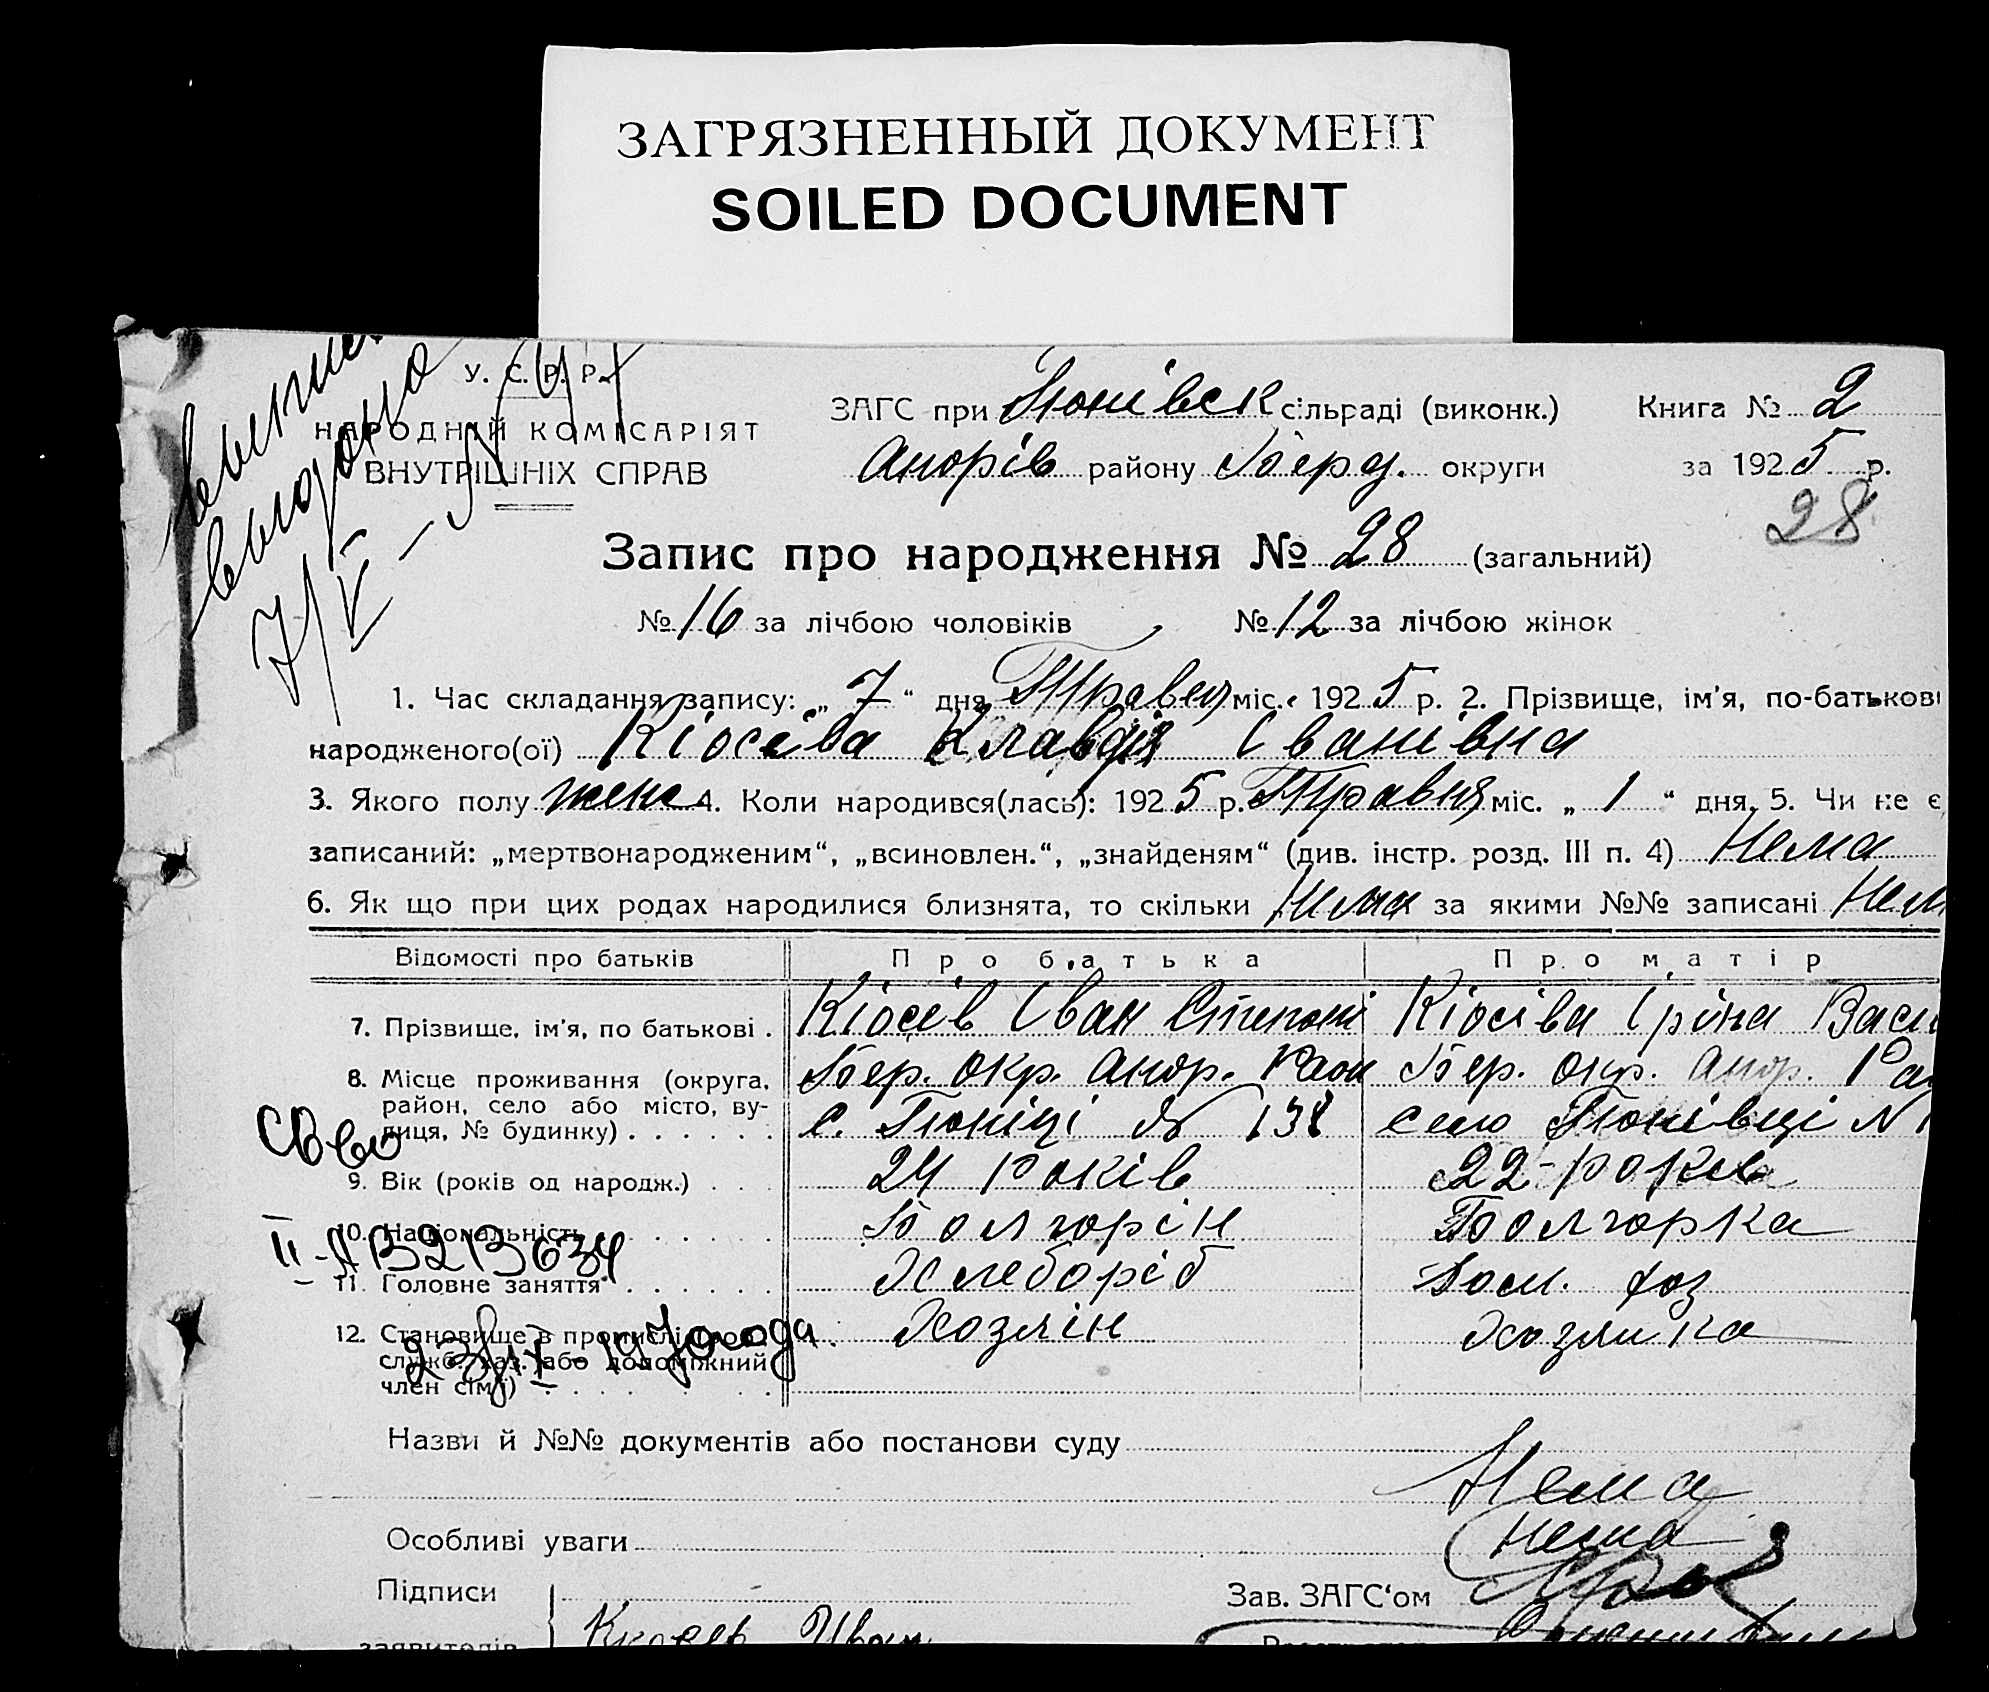 ЗАГРЯЗНЕННЫЙ ДОКУМЕНТ
SOILED DOCUMENT
У. С. Р. Р.
НАРОДНІЙ КОМІСАРІЯТ
ВНУТРІШНІХ СПРАВ
видано
7/V
ЗАГС при сільраді (виконк.) Книга № 2
Андрів району Берд. округи за 1925 р.
28
Запис про народження № 28 (загальний)
№ 16 за лічбою чоловіків № 12 за лічбою жінок
1. Час складання запису: „ 7 “ дня Травня міс. 1925 р. 2. Прізвище, ім'я, по-батькові
народженого(ої) Кіосева Клавдія Іванівна
3. Якого полу жіно 4. Коли народився(лась): 1925 р. Травня міс. „ 1 “ дня. 5. Чи не є
записаний: „мертвонародженим“, „всиновлен.“, „знайденям“ (див. інстр. розд. III п. 4) Нема
6. Як що при цих родах народилися близнята, то скільки Нема за якими №№ записані Нем
Відомості про батьків Про батька Про матір
7. Прізвище, ім'я, по батькові . Кіосєв Іван Степані Кіосіва Іріна Васи
8. Місце проживання (округа, Бер. окр. Андр. Раои Бер. окр. Андр. Ра
район, село або місто, ву-
лиця, № будинку) . . . . . . с. № 138 село №
Св во
9. Вік (років од народж.) . . 24 Років 22-років
10. Національність . . . . . . Болгорін Болгорка
II-АВ 213634
11. Головне заняття . . . . . . Хлеборіб Дом. хоз
12. Становище в промислі Хозяін Хозяика
служб. хаз. або допоміжний
член сім'ї) . . . . . . . .
23/IX-197 года
Назви й №№ документів або постанови суду
Нема
Особливі уваги Нема
Підписи Зав. ЗАГС'ом
заявителів Киосев Иван